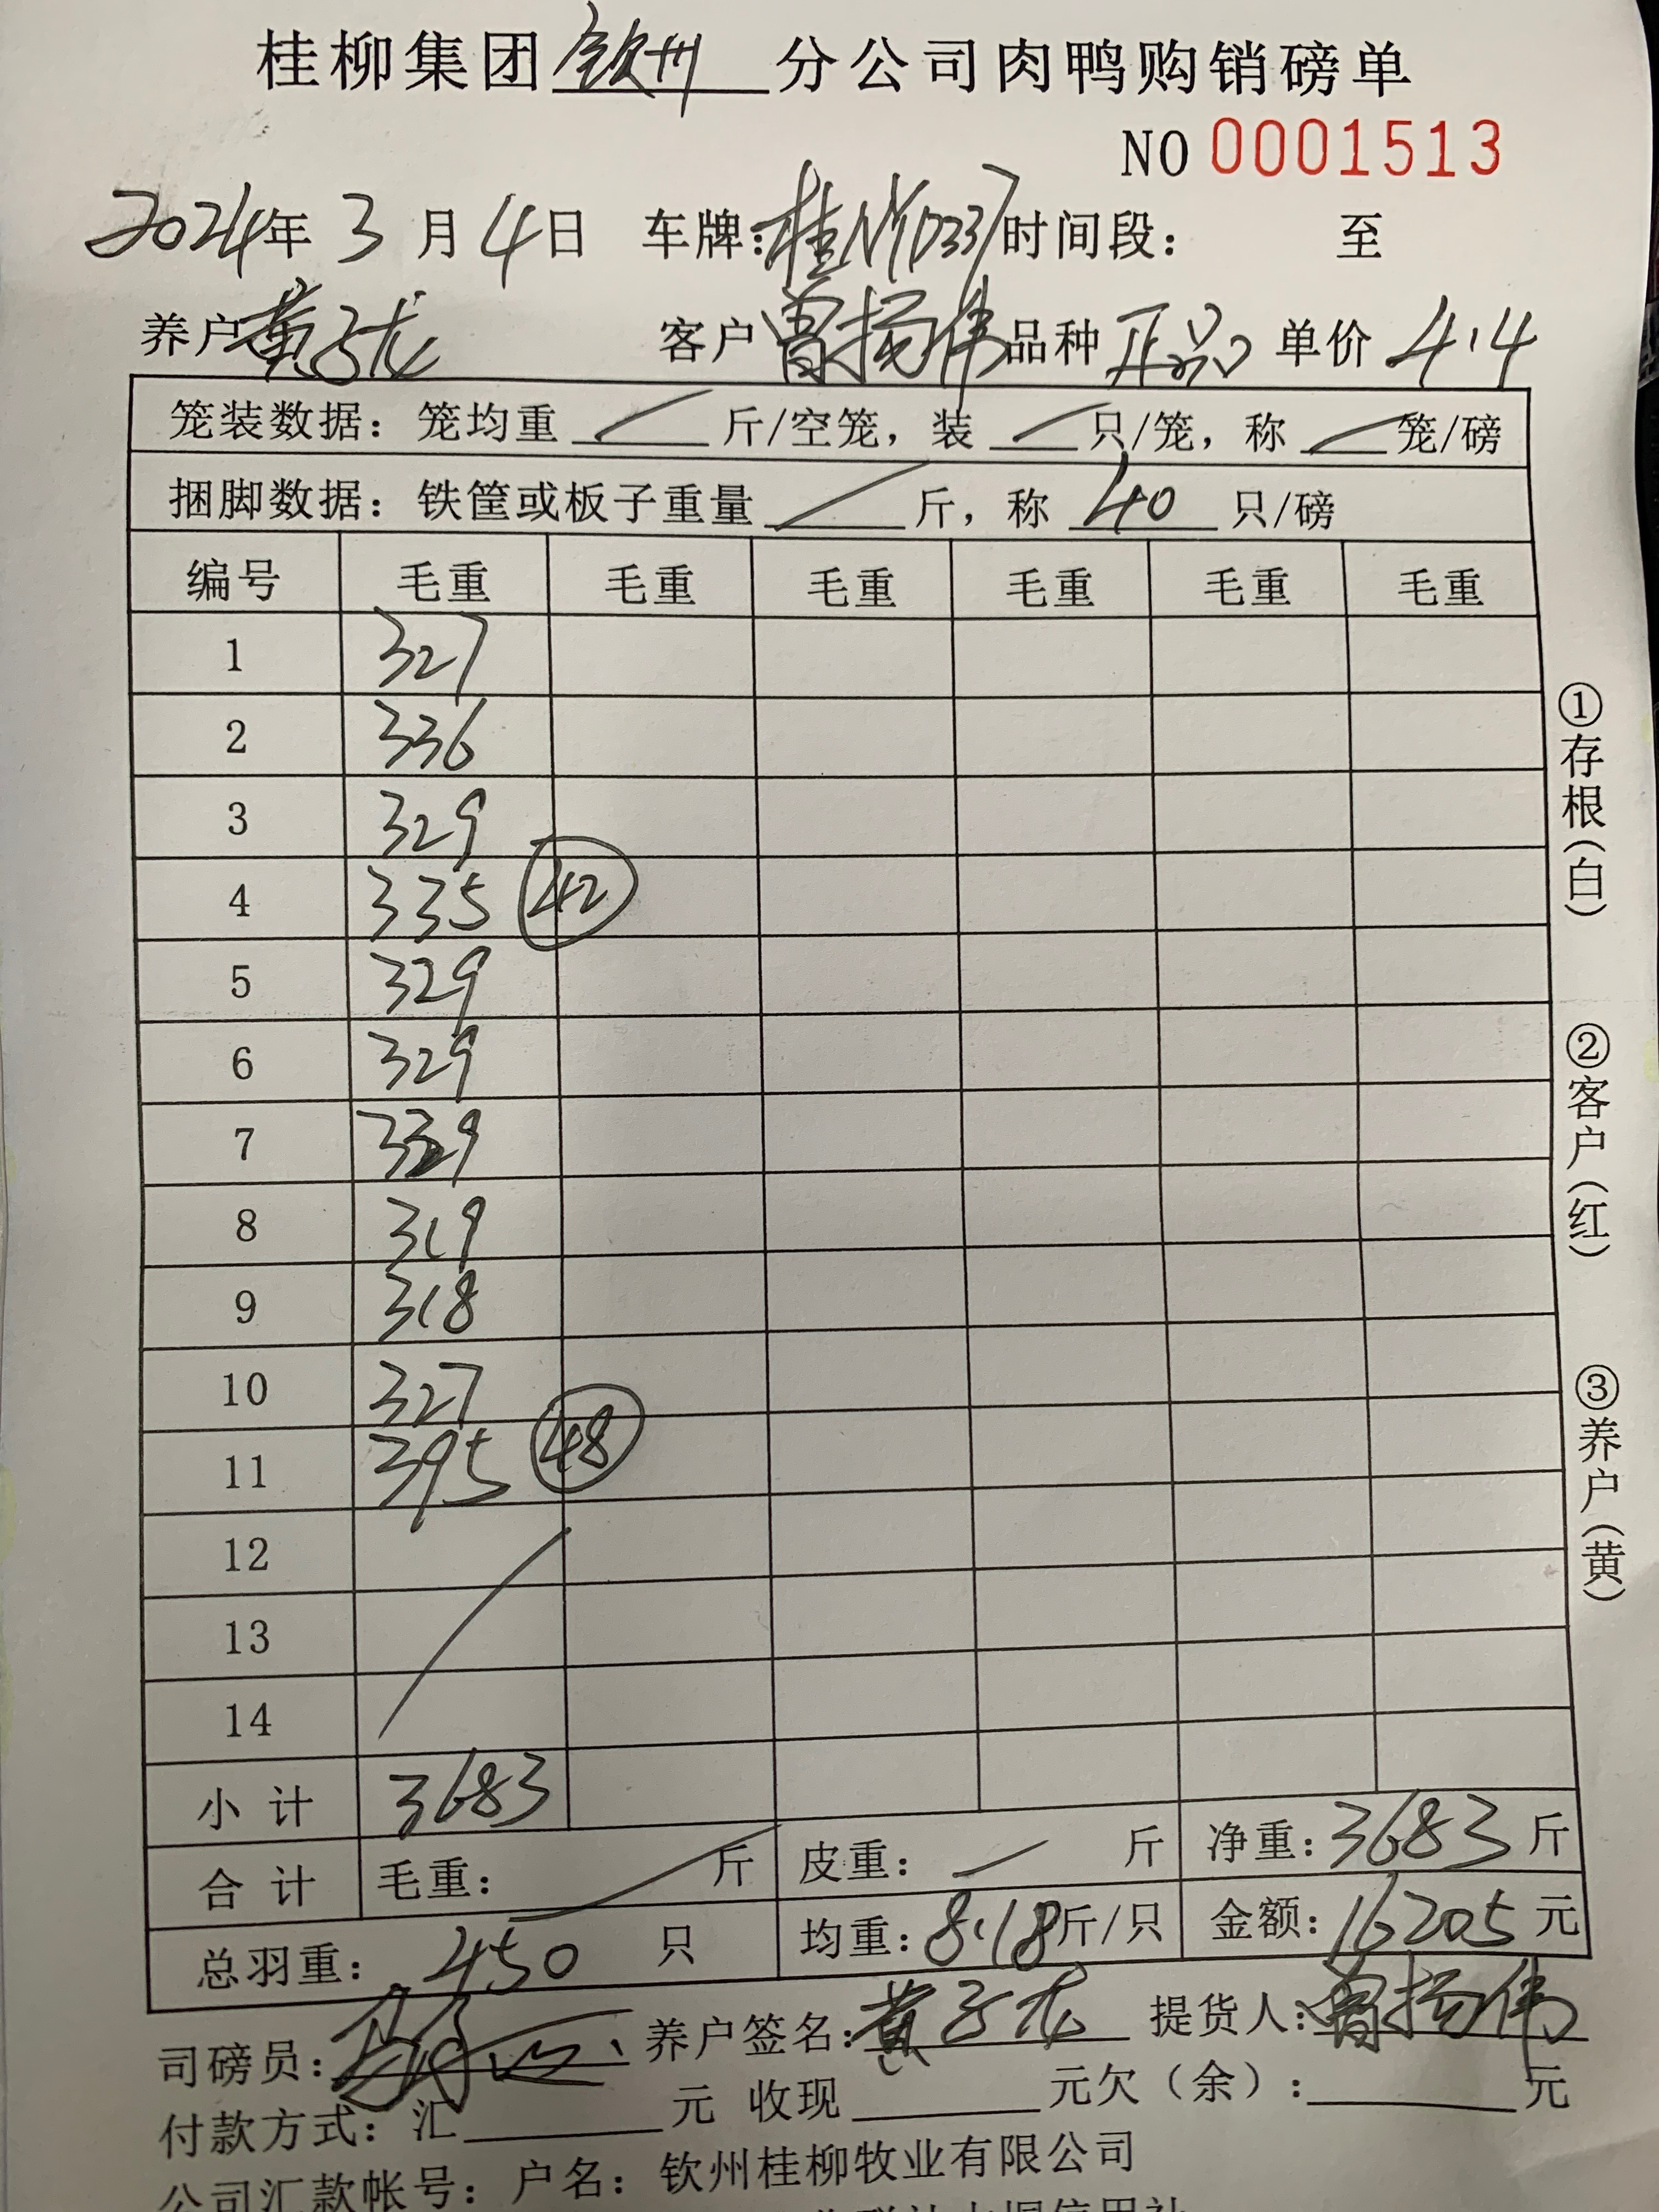 桂柳集团钦州分公司肉鸭购销磅单
NO 0001513
2024年3月4日 车牌:桂NYD337时间段: 至
养户黄子龙 客户曾扬伟品种正品 单价4.4
笼装数据:笼均重 / 斤/空笼,装 / 只/笼,称 / 笼/磅
捆脚数据:铁筐或板子重量 / 斤,称 40 只/磅
编号 毛重 毛重 毛重 毛重 毛重 毛重
1 327
2 336
3 329
4 335 42
5 329
6 329
7 339
8 319
9 318
10 327
11 395 48
12
13
14
小计 3683
合计 毛重: / 斤 皮重: / 斤 净重:3683斤
总羽重:450 只 均重:8.18斤/只 金额:16205元
司磅员: 养户签名:黄子龙 提货人:曾扬伟
付款方式:汇 元 收现 元欠(余): 元
公司汇款帐号:户名:钦州桂柳牧业有限公司
①存根(白)
②客户(红)
③养户(黄)